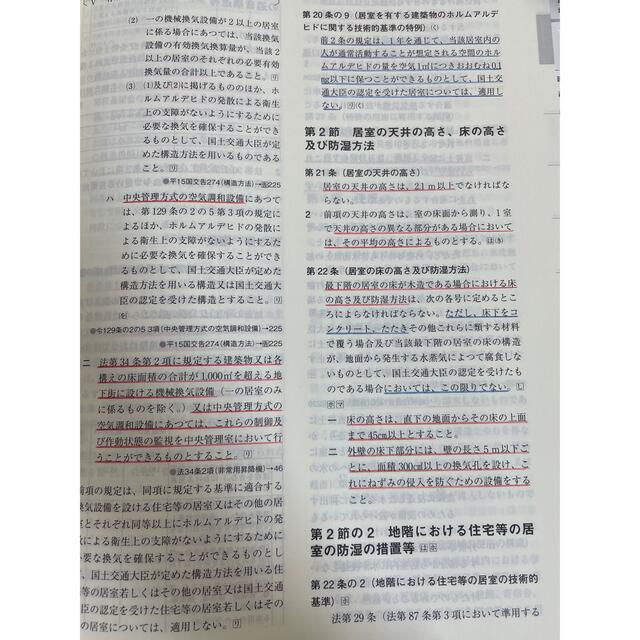 (2) 一の機械換気設備が2以上の居室
に係る場合にあつては、当該換気
設備の有効換気換算量が、当該2
以上の居室のそれぞれの必要有効
換気量の合計以上であること。リ
(3) (1)及び(2)に掲げるもののほか、ホ
ルムアルデヒドの発散による衛生
上の支障がないようにするために
必要な換気を確保することができ
るものとして、国土交通大臣が定
めた構造方法を用いるものである
こと。リ
●平15国交告274(構造方法)→告225
ハ 中央管理方式の空気調和設備にあつて
は、第129条の2の5第3項の規定に
よるほか、ホルムアルデヒドの発散に
よる衛生上の支障がないようにするた
めに必要な換気を確保することができ
るものとして、国土交通大臣が定めた
構造方法を用いる構造又は国土交通大
臣の認定を受けた構造とすること。リ
を
●令129条の2の5 3項(中央管理方式の空気調和設備)→225
●平15国交告274(構造方法)→告225
ニ 法第34条第2項に規定する建築物又は各
構えの床面積の合計が1,000㎡を超える地
下街に設ける機械換気設備(一の居室のみ
に係るものを除く。)又は中央管理方式の
空気調和設備にあつては、これらの制御及
び作動状態の監視を中央管理室において行
うことができるものとすること。リ
●法34条2項(非常用昇降機)→46
前項の規定は、同項に規定する基準に適合する
換気設備を設ける住宅等の居室又はその他の居
室とそれぞれ同等以上にホルムアルデヒドの発
散による衛生上の支障がないようにするために
必要な換気を確保することができるものとし
、国土交通大臣が定めた構造方法を用いる住
等の居室若しくはその他の居室又は国土交通
臣の認定を受けた住宅等の居室若しくはその
の居室については、適用しない。リ
第20条の9(居室を有する建築物のホルムアルデ
ヒドに関する技術的基準の特例)く
前2条の規定は、1年を通じて、当該居室内の
人が通常活動することが想定される空間のホル
ムアルデヒドの量を空気1㎥につきおおむね0.1
mg以下に保つことができるものとして、国土交
通大臣の認定を受けた居室については、適用し
ない。リく
第2節 居室の天井の高さ、床の高さ
及び防湿方法
第21条(居室の天井の高さ)
居室の天井の高さは、2.1m以上でなければな
らない。
2 前項の天井の高さは、室の床面から測り、1室
で天井の高さの異なる部分がある場合において
は、その平均の高さによるものとする。はき
第22条(居室の床の高さ及び防湿方法)
最下階の居室の床が木造である場合における床
の高さ及び防湿方法は、次の各号に定めるとこ
ろによらなければならない。ただし、床下をコ
ンクリート、たたきその他これらに類する材料
で覆う場合及び当該最下階の居室の床の構造
が、地面から発生する水蒸気によつて腐食しな
いものとして、国土交通大臣の認定を受けたも
のである場合においては、この限りでない。し
一 床の高さは、直下の地面からその床の上面
まで45cm以上とすること。
二 外壁の床下部分には、壁の長さ5m以下ご
とに、面積300c㎡以上の換気孔を設け、これ
にねずみの侵入を防ぐための設備をするこ
と。
第2節の2 地階における住宅等の居
室の防湿の措置等
第22条の2(地階における住宅等の居室の技術的
基準)
法第29条(法第87条第3項において準用する